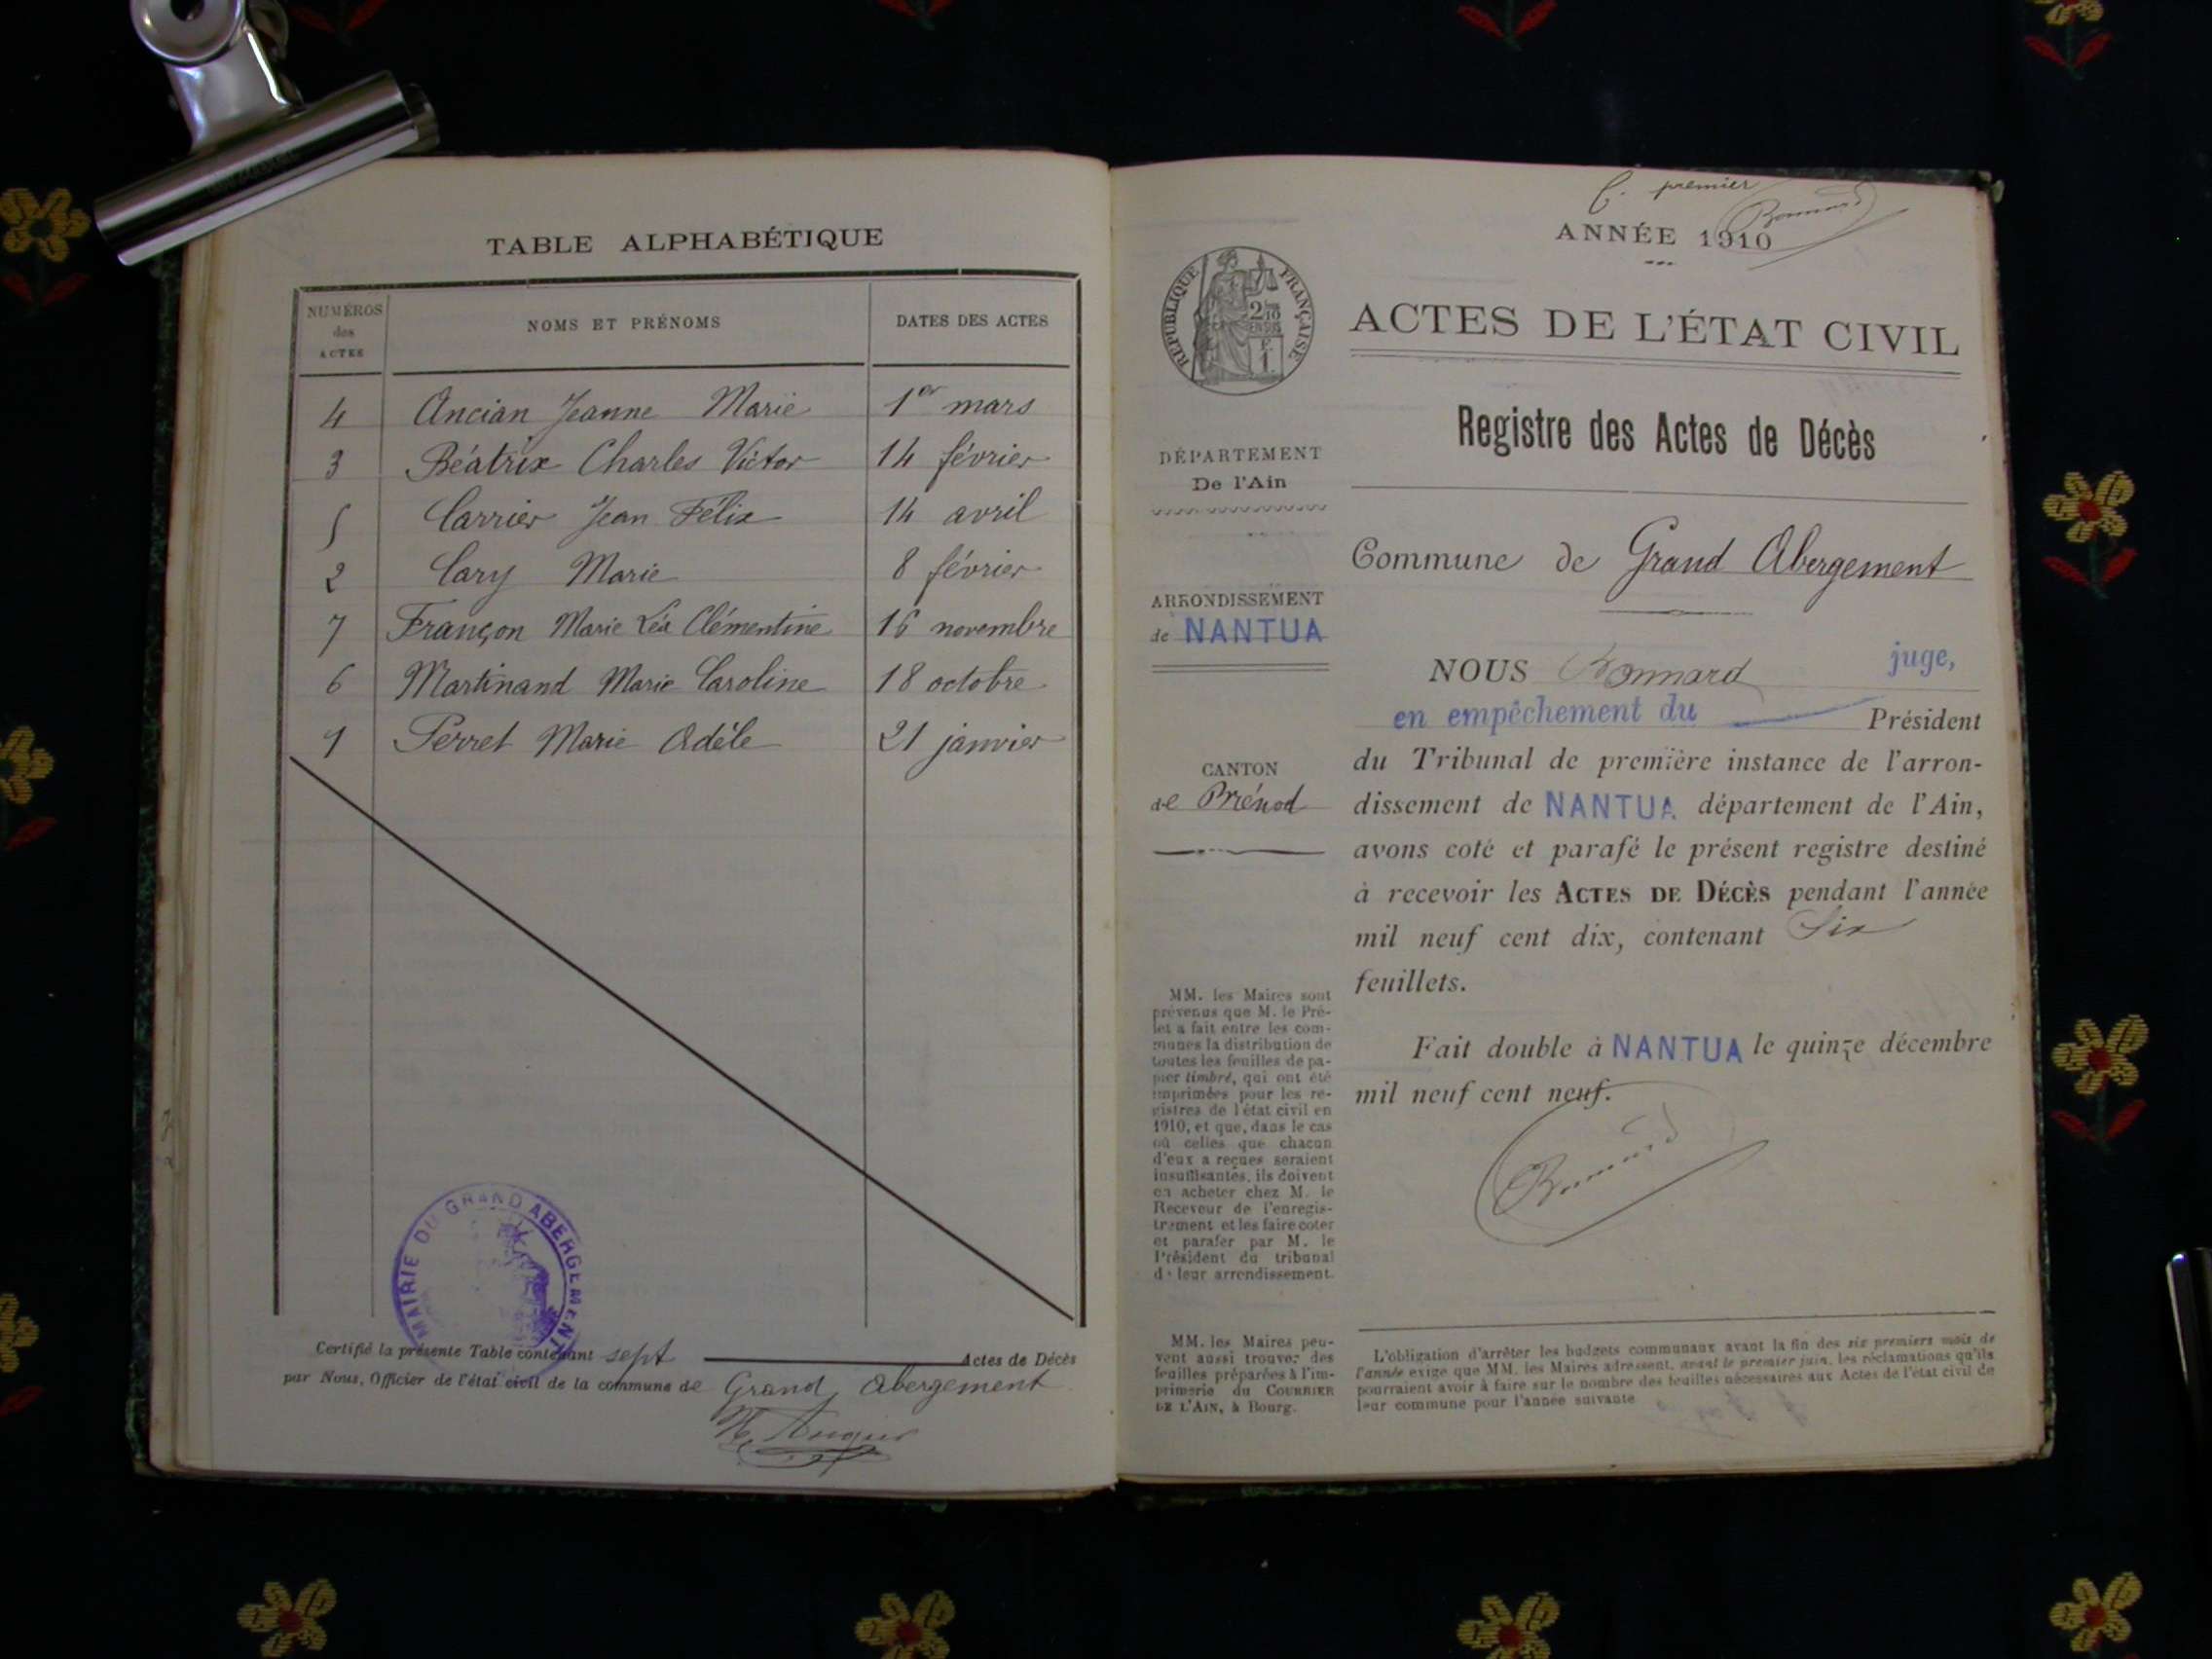 TABLE ALPHABÉTIQUE
NUMÉROS des ACTES
NOMS ET PRÉNOMS
DATES DES ACTES
4 Ancian Jeanne Marie 1er mars
3 Béatrix Charles Victor 14 février
5 Carrier Jean Félix 14 avril
2 Cary Marie 8 février
7 Françon Marie Léa Clémentine 16 novembre
6 Martinand Marie Caroline 18 octobre
1 Perret Marie Adèle 21 janvier
MAIRIE DU GRAND ABERGEMENT
Certifié la présente Table contenant sept Actes de Décès
par Nous, Officier de l'état civil de la commune de Grand Abergement
premier
Bonnard
ANNÉE 1910
RÉPUBLIQUE FRANÇAISE
ACTES DE L'ÉTAT CIVIL
Registre des Actes de Décès
DÉPARTEMENT
De l'Ain
Commune de Grand Abergement
ARRONDISSEMENT
de NANTUA
CANTON
de Brénod
NOUS Bonnard juge,
en empêchement du Président
du Tribunal de première instance de l'arron-
dissement de NANTUA département de l'Ain,
avons coté et parafé le présent registre destiné
à recevoir les ACTES DE DÉCÈS pendant l'année
mil neuf cent dix, contenant Six
feuillets.
Fait double à NANTUA le quinze décembre
mil neuf cent neuf.
Bonnard
MM. les Maires sont
prévenus que M. le Pré-
fet a fait entre les com-
munes la distribution de
toutes les feuilles de pa-
pier timbré, qui ont été
imprimées pour les re-
gistres de l'état civil en
1910, et que, dans le cas
où celles que chacun
d'eux a reçues seraient
insuffisantes, ils doivent
en acheter chez M. le
Receveur de l'enregis-
trement et les faire coter
et parafer par M. le
Président du tribunal
de leur arrondissement.
MM. les Maires peu-
vent aussi trouver des
feuilles préparées à l'im-
primerie du COURRIER
DE L'AIN, à Bourg.
L'obligation d'arrêter les budgets communaux avant la fin des six premiers mois de
l'année exige que MM. les Maires adressent, avant le premier juin, les réclamations qu'ils
pourraient avoir à faire sur le nombre des feuilles nécessaires aux Actes de l'état civil de
leur commune pour l'année suivante